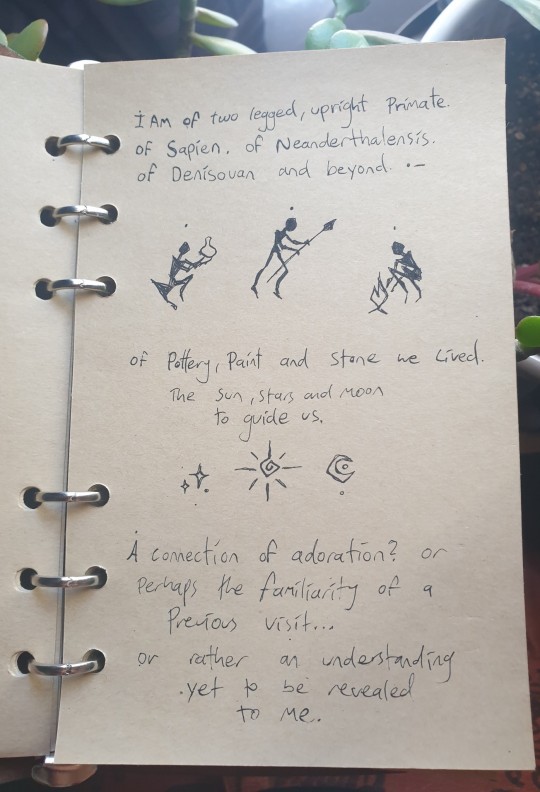 I Am of two legged, upright Primate.
of Sapien. of Neanderthalensis.
of Denisovan and beyond. .-
of Pottery, Paint and Stone we Lived.
The Sun, stars and Moon
to guide us.
A connection of adoration? or
Perhaps the familiarity of a
Previous visit...
or rather an understanding
.yet to be revealed
to me.